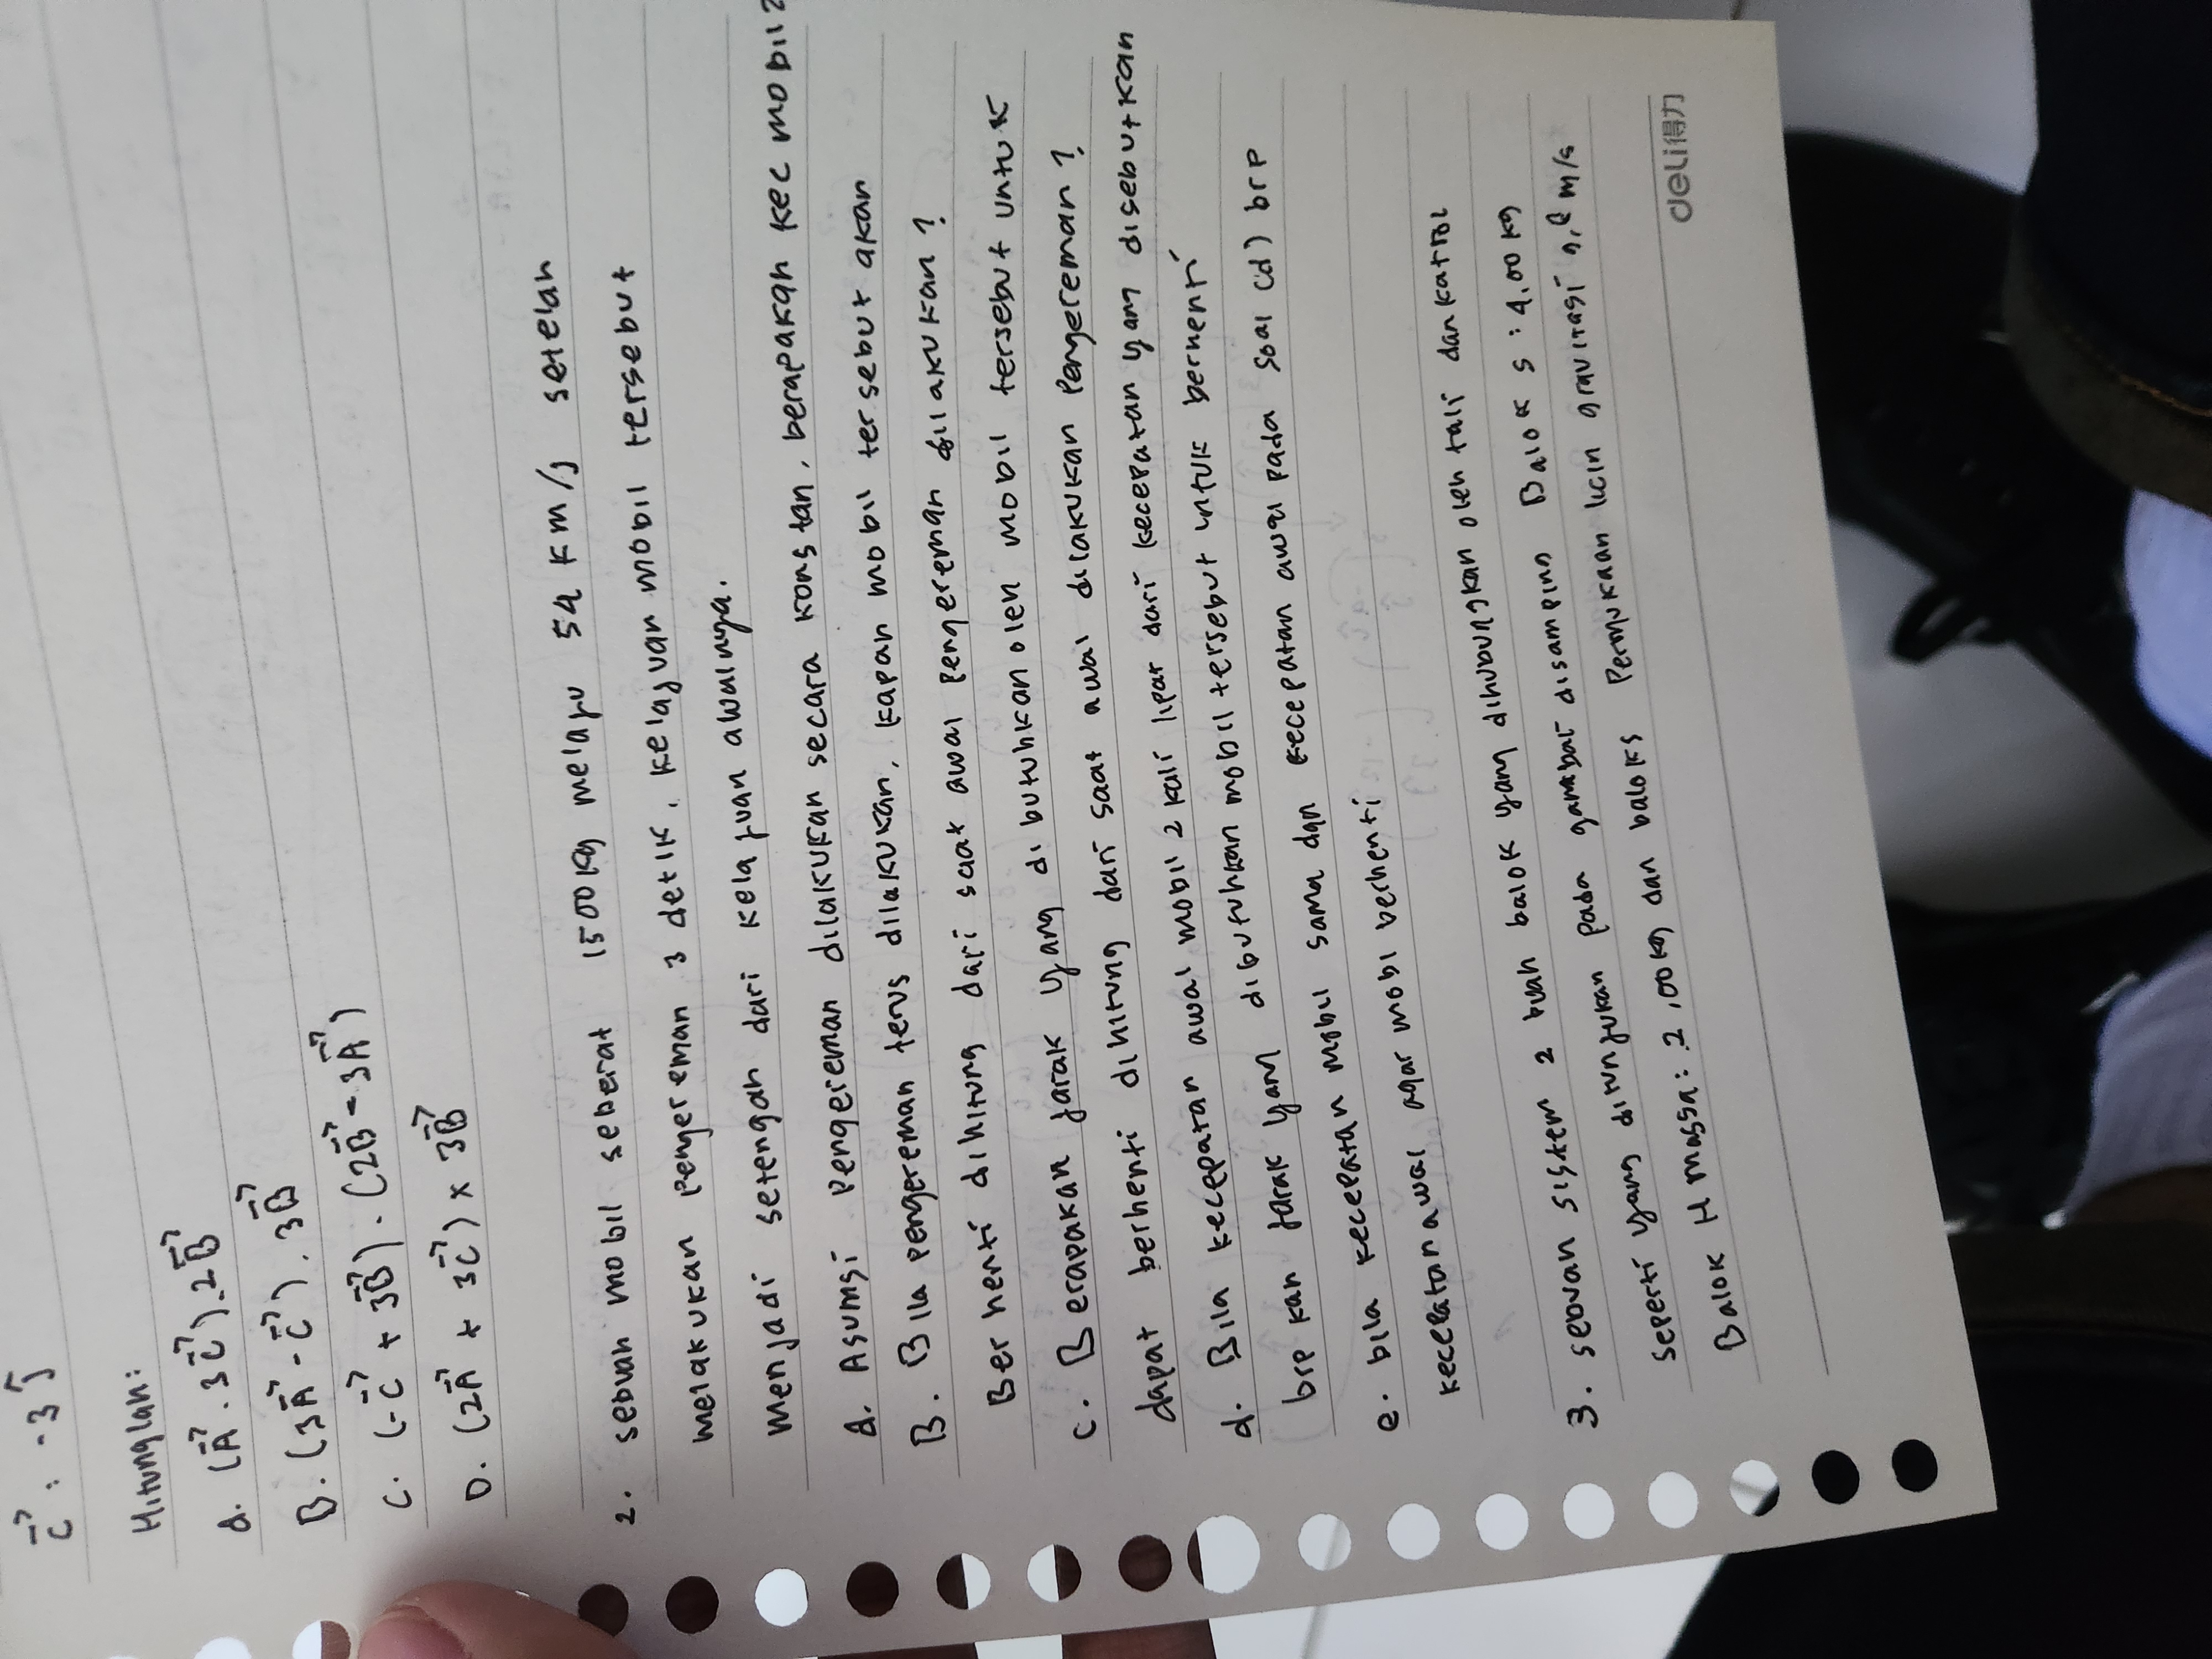 C⃗ : -3 ĵ
Hitunglah:
a. (A⃗ . 3C⃗). 2B⃗
B. (3A⃗ - C⃗) . 3B⃗
C. (-C⃗ + 3B⃗) . (2B⃗ - 3A⃗)
D. (2A⃗ + 3C⃗) x 3B⃗
2. sebuah mobil seberat 1500kg melaju 54 km/j setelah
melakukan pengereman 3 detik, kelajuan mobil tersebut
menjadi setengah dari kelajuan awalnya.
A. Asumsi pengereman dilakukan secara konstan, berapakah kec mobil?
B. Bila pengereman terus dilakukan, kapan mobil tersebut akan
Berhenti dihitung dari saat awal pengereman dilakukan?
C. Berapakah jarak yang dibutuhkan oleh mobil tersebut untuk
dapat berhenti dihitung dari saat awal dilakukan pengereman?
d. Bila kecepatan awal mobil 2 kali lipat dari kecepatan yang disebutkan
brp kah jarak yang dibutuhkan mobil tersebut untuk berhenti
e. bila kecepatan mobil sama dgn kecepatan awal pada soal (d) brp
kecepatan awal agar mobi berhenti
3. sebuah sistem 2 buah balok yang dihubungkan oleh tali dan katrol
seperti yang ditunjukan pada gambar disamping Balok s : 4,00 kg
Balok H massa: 2,00kg dan balok s permukaan licin gravitasi 9,8 m/s
deli得力